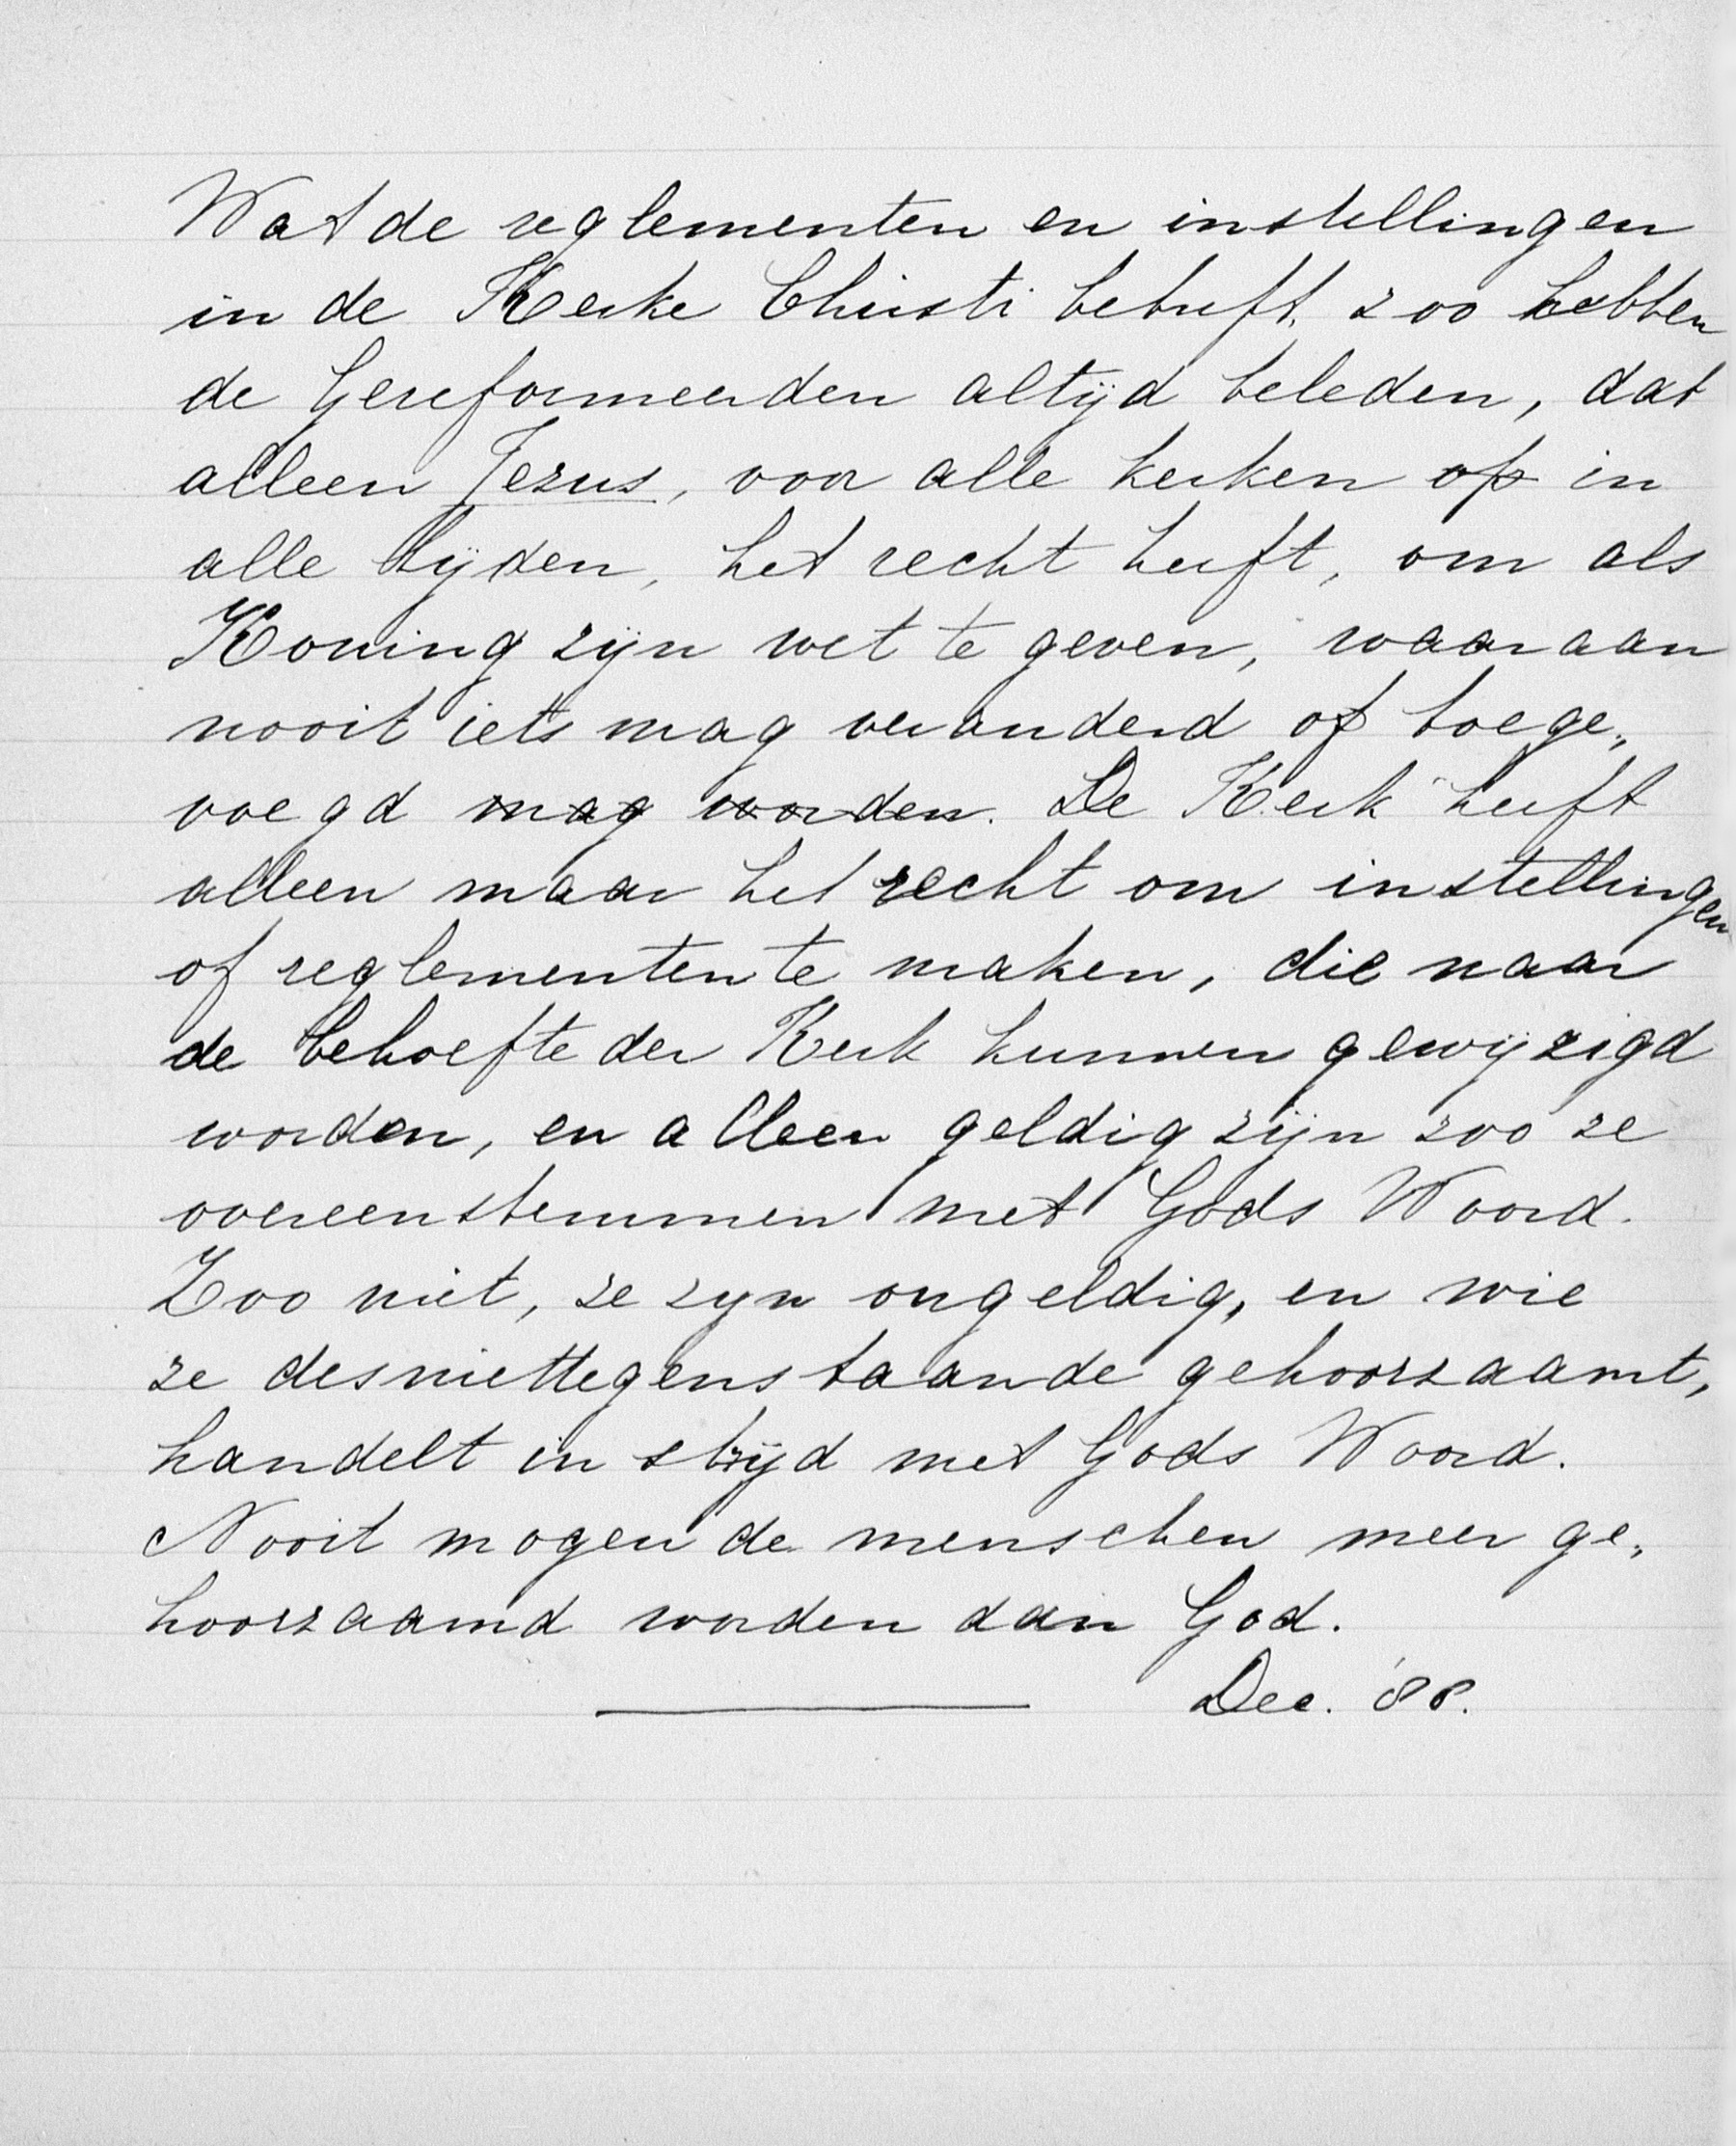 Wat de reglementen en instellingen
in de Kerke Christi betreft, zoo hebben
de Gereformeerden altijd beleden, dat
alleen Jezus, voor alle kerken op in
alle tijden, het recht heeft, om als
Koning zijn wet te geven, waaraan
nooit iets mag veranderd of toege„
voegd mag worden. De Kerk heeft
alleen maar het recht om instellingen
of reglementen te maken, die naar
de behoefte der Kerk kunnen gewijzigd
worden, en alleen geldig zijn zoo ze
overeenstemmen met Gods Woord.
Zoo niet, ze zijn ongeldig, en wie
ze desniettegenstaande gehoorzaamt,
handelt in strijd met Gods Woord.
Nooit mogen de menschen meer ge„
hoorzaamd worden dan God.
Dec. '88.